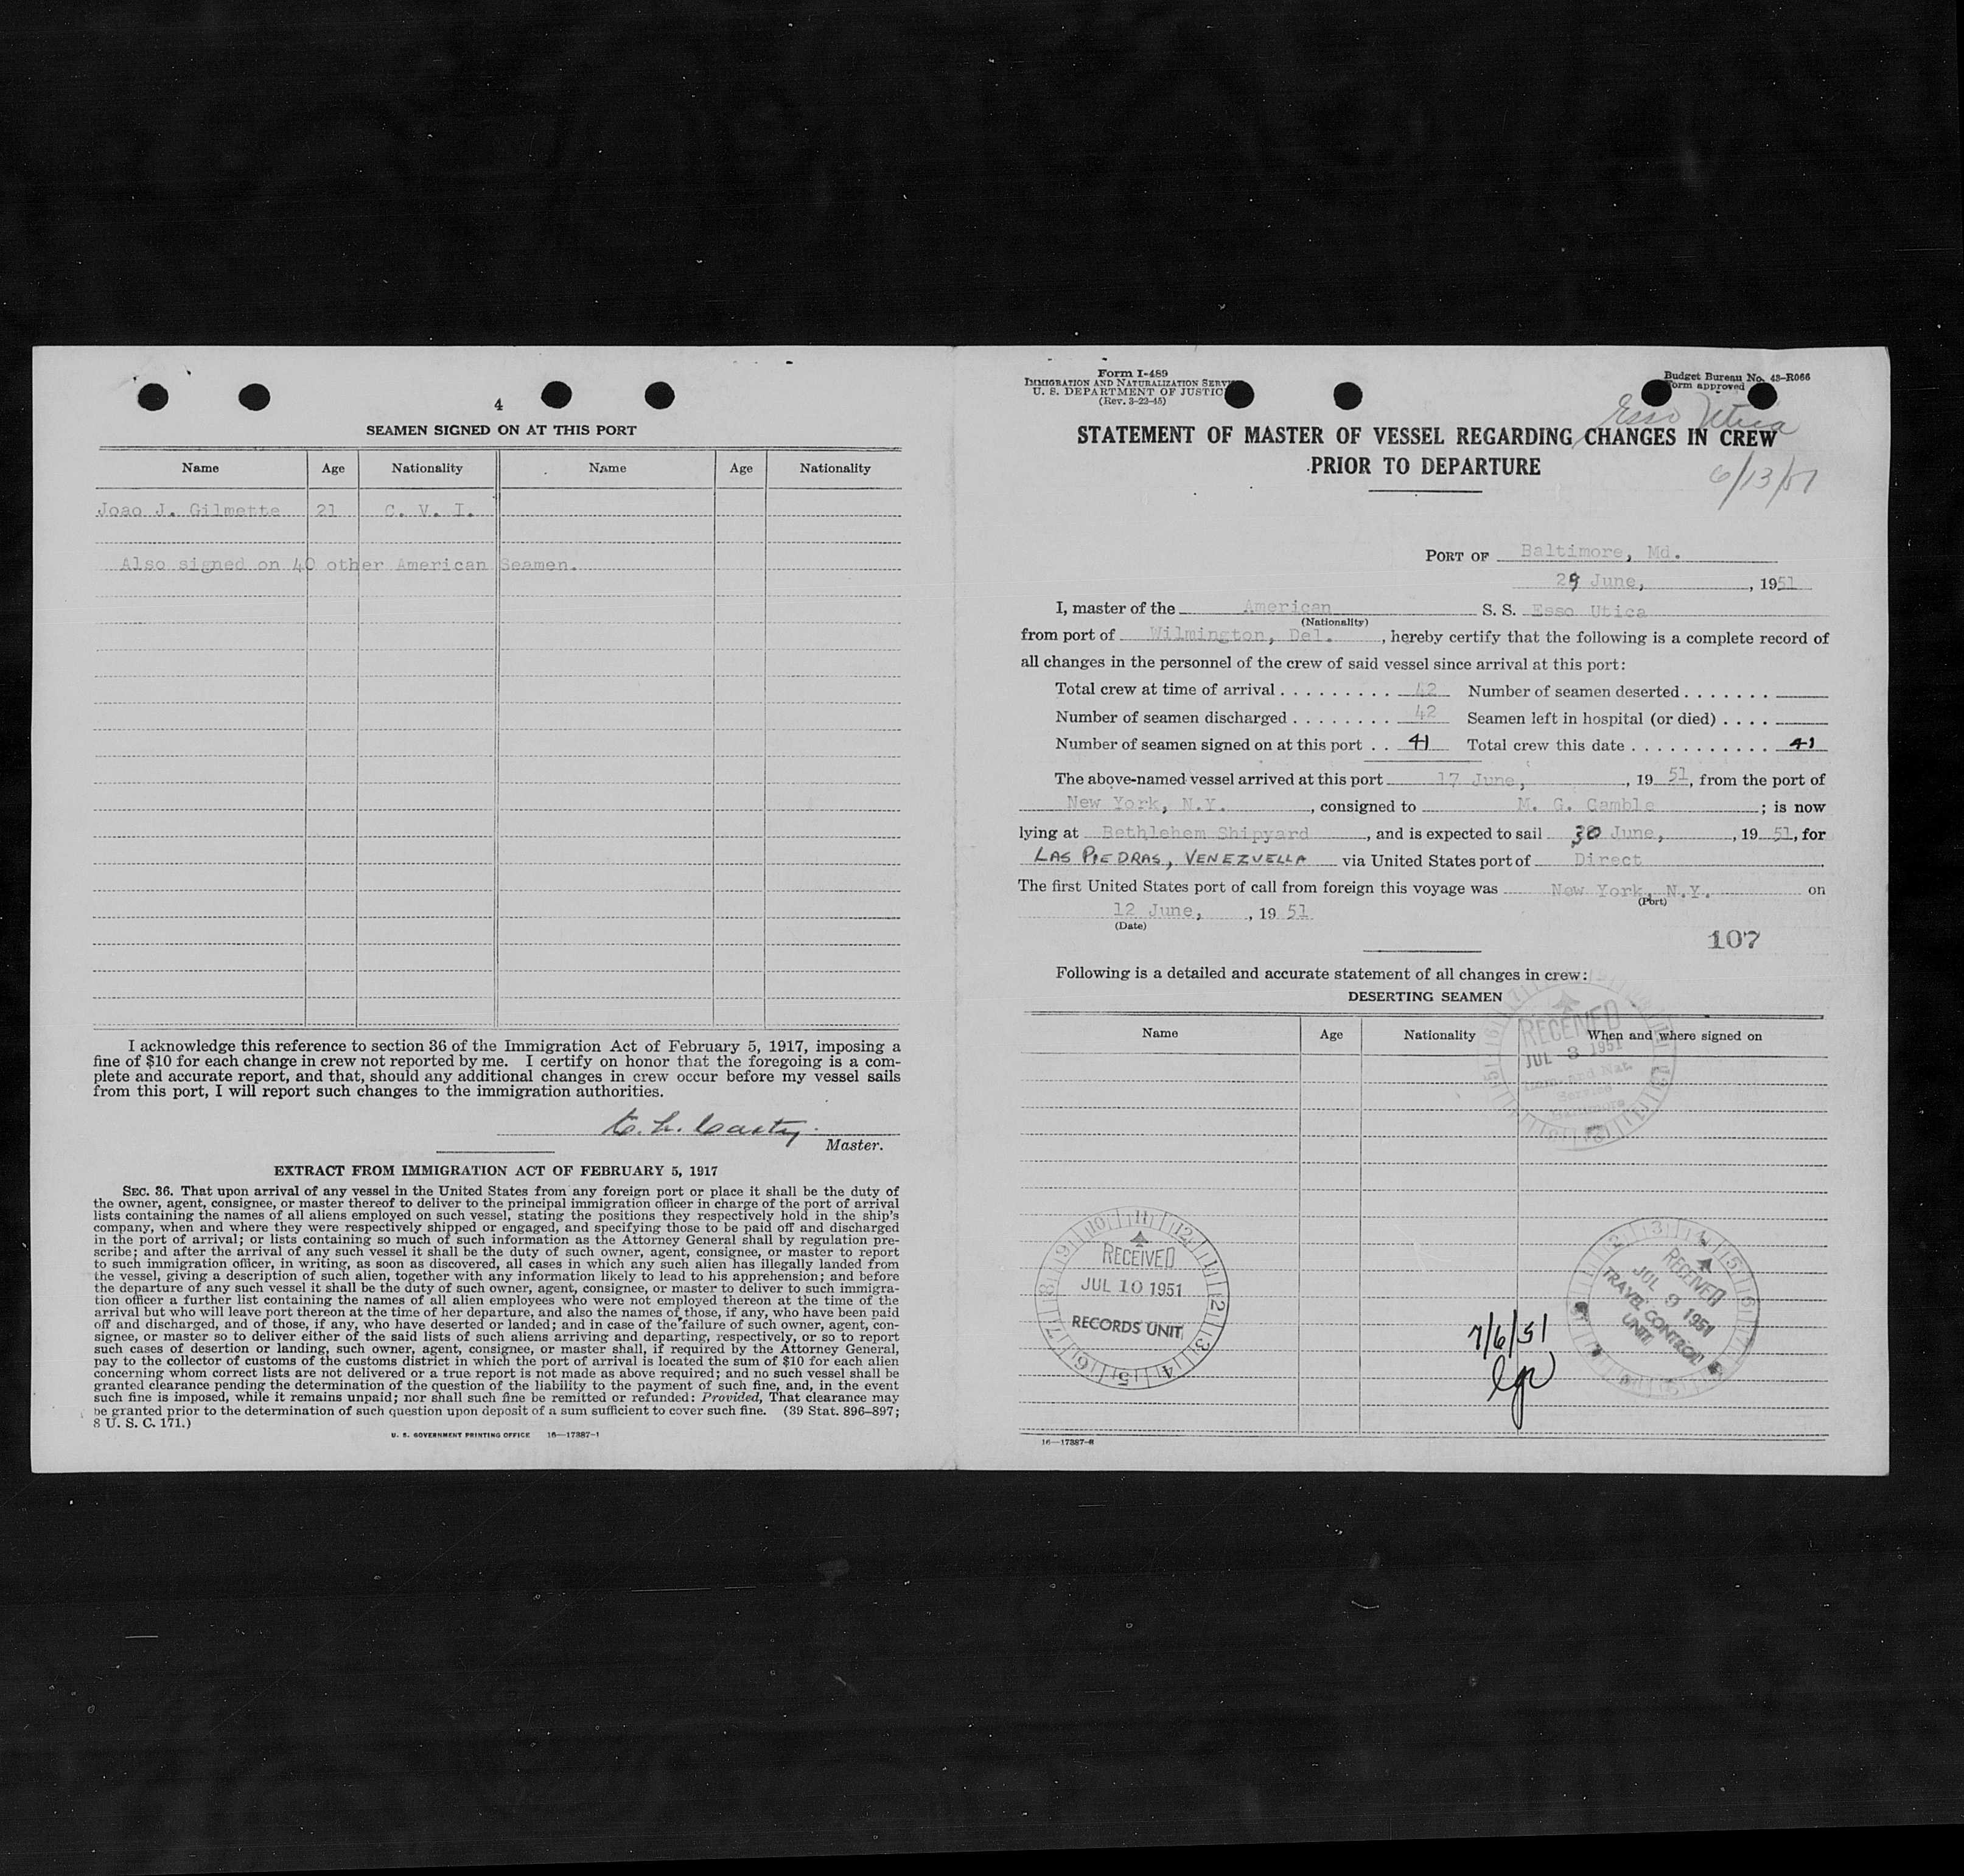 4
SEAMEN SIGNED ON AT THIS PORT
Name Age Nationality Name Age Nationality
Joao J. Gilmette 21 C. V. I.
Also signed on 40 other American Seamen.
I acknowledge this reference to section 36 of the Immigration Act of February 5, 1917, imposing a
fine of $10 for each change in crew not reported by me. I certify on honor that the foregoing is a com-
plete and accurate report, and that, should any additional changes in crew occur before my vessel sails
from this port, I will report such changes to the immigration authorities.
Master.
EXTRACT FROM IMMIGRATION ACT OF FEBRUARY 5, 1917
SEC. 36. That upon arrival of any vessel in the United States from any foreign port or place it shall be the duty of
the owner, agent, consignee, or master thereof to deliver to the principal immigration officer in charge of the port of arrival
lists containing the names of all aliens employed on such vessel, stating the positions they respectively hold in the ship's
company, when and where they were respectively shipped or engaged, and specifying those to be paid off and discharged
in the port of arrival; or lists containing so much of such information as the Attorney General shall by regulation pre-
scribe; and after the arrival of any such vessel it shall be the duty of such owner, agent, consignee, or master to report
to such immigration officer, in writing, as soon as discovered, all cases in which any such alien has illegally landed from
the vessel, giving a description of such alien, together with any information likely to lead to his apprehension; and before
the departure of any such vessel it shall be the duty of such owner, agent, consignee, or master to deliver to such immigra-
tion officer a further list containing the names of all alien employees who were not employed thereon at the time of the
arrival but who will leave port thereon at the time of her departure, and also the names of those, if any, who have been paid
off and discharged, and of those, if any, who have deserted or landed; and in case of the failure of such owner, agent, con-
signee, or master so to deliver either of the said lists of such aliens arriving and departing, respectively, or so to report
such cases of desertion or landing, such owner, agent, consignee, or master shall, if required by the Attorney General,
pay to the collector of customs of the customs district in which the port of arrival is located the sum of $10 for each alien
concerning whom correct lists are not delivered or a true report is not made as above required; and no such vessel shall be
granted clearance pending the determination of the question of the liability to the payment of such fine, and, in the event
such fine is imposed, while it remains unpaid; nor shall such fine be remitted or refunded: Provided, That clearance may
be granted prior to the determination of such question upon deposit of a sum sufficient to cover such fine. (39 Stat. 896–897;
8 U. S. C. 171.)
U. S. GOVERNMENT PRINTING OFFICE 16—17387-1
Form I-489
IMMIGRATION AND NATURALIZATION SERV
U. S. DEPARTMENT OF JUSTIC
(Rev. 3-23-45)
Budget Bureau No. 43-R066
Form approved
Esso Utica
STATEMENT OF MASTER OF VESSEL REGARDING CHANGES IN CREW
PRIOR TO DEPARTURE
6/13/51
PORT OF Baltimore, Md.
29 June, , 1951
I, master of the American S. S. Esso Utica
(Nationality)
from port of Wilmington, Del. , hereby certify that the following is a complete record of
all changes in the personnel of the crew of said vessel since arrival at this port:
Total crew at time of arrival . . . . . . . . . 42 Number of seamen deserted . . . . . . .
Number of seamen discharged . . . . . . . . 42 Seamen left in hospital (or died) . . . .
Number of seamen signed on at this port . . 41 Total crew this date . . . . . . . . . . . 41
The above-named vessel arrived at this port 17 June, , 19 51, from the port of
New York, N.Y. , consigned to M. G. Gamble ; is now
lying at Bethlehem Shipyard , and is expected to sail 30 June, , 19 51, for
LAS PIEDRAS, VENEZUELLA via United States port of Direct
The first United States port of call from foreign this voyage was New York, N.Y. on
(Port)
12 June, , 19 51
(Date)
107
Following is a detailed and accurate statement of all changes in crew:
DESERTING SEAMEN
Name Age Nationality When and where signed on
RECEIVED
JUL 3 1951
Imm. and Nat.
Service
Baltimore
RECEIVED
JUL 10 1951
RECORDS UNIT
7/6/51
RECEIVED
JUL 9 1951
TRAVEL CONTROL
UNIT
16—17387-1